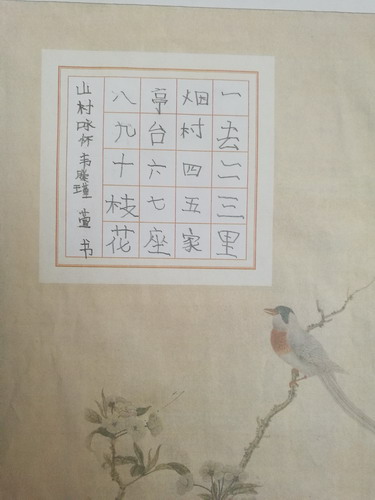 一去二三里
烟村四五家
亭台六七座
八九十枝花
山村咏怀 书